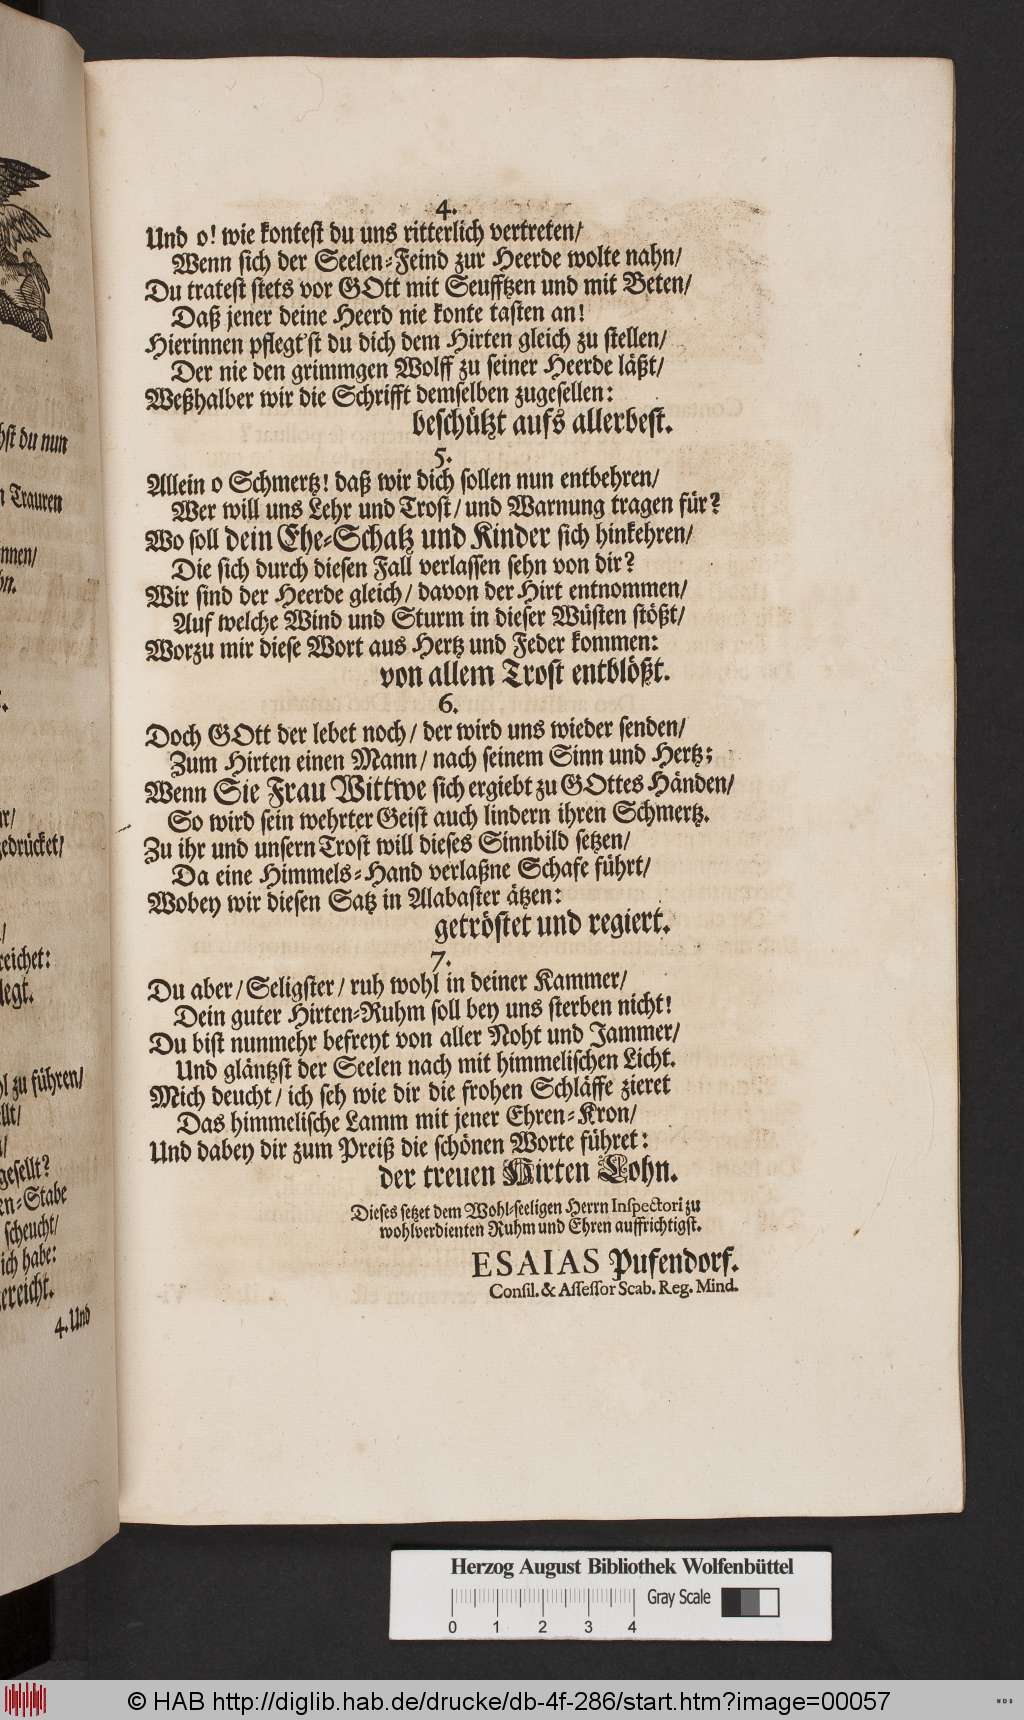 4.
Und o! wie kontest du uns ritterlich vertreten/
Wenn sich der Seelen-Feind zur Heerde wolte nahn/
Du tratest stets vor GOtt mit Seufftzen und mit Beten/
Daß jener deine Heerd nie konte tasten an!
Hierinnen pflegt'st du dich dem Hirten gleich zu stellen/
Der nie den grimmgen Wolff zu seiner Heerde läßt/
Weßhalber wir die Schrifft demselben zugesellen:
beschützt aufs allerbest.
5.
Allein o Schmertz! daß wir dich sollen nun entbehren/
Wer will uns Lehr und Trost/ und Warnung tragen für?
Wo soll dein Ehe-Schatz und Kinder sich hinkehren/
Die sich durch diesen Fall verlassen sehn von dir?
Wir sind der Heerde gleich/ davon der Hirt entnommen/
Auf welche Wind und Sturm in dieser Wüsten stößt/
Worzu mir diese Wort aus Hertz und Feder kommen:
von allem Trost entblößt.
6.
Doch GOtt der lebet noch/ der wird uns wieder senden/
Zum Hirten einen Mann/ nach seinem Sinn und Hertz;
Wenn Sie Frau Wittwe sich ergiebt zu GOttes Händen/
So wird sein wehrter Geist auch lindern ihren Schmertz.
Zu ihr und unsern Trost will dieses Sinnbild setzen/
Da eine Himmels-Hand verlaßne Schafe führt/
Wobey wir diesen Satz in Alabaster ätzen:
getröstet und regiert.
7.
Du aber/ Seligster/ ruh wohl in deiner Kammer/
Dein guter Hirten-Ruhm soll bey uns sterben nicht!
Du bist nunmehr befreyt von aller Noht und Jammer/
Und gläntzst der Seelen nach mit himmelischen Licht.
Mich deucht/ ich seh wie dir die frohen Schläffe zieret
Das himmelische Lamm mit jener Ehren-Kron/
Und dabey dir zum Preiß die schönen Worte führet:
der treuen Hirten Lohn.
Dieses setzet dem Wohl-seeligen Herrn Inspectori zu
wohlverdienten Ruhm und Ehren auffrichtigst.
ESAIAS Pufendorf.
Consil. & Assessor Scab. Reg. Mind.
du nun
Trauren
zu führen/
gesellt?
scheucht/
ich habe:
4. Und
Herzog August Bibliothek Wolfenbüttel
0 1 2 3 4
Gray Scale
© HAB http://diglib.hab.de/drucke/db-4f-286/start.htm?image=00057